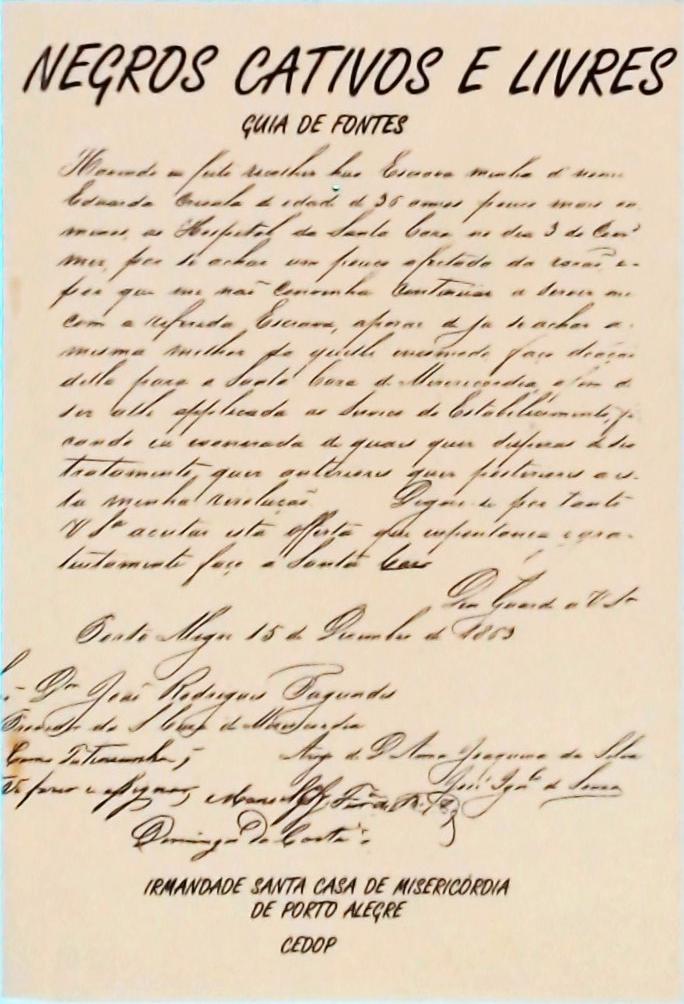 NEGROS CATIVOS E LIVRES
GUIA DE FONTES
Havendo eu feito recolher hua Escrava minha de nome
Eduarda Crioula de idade de 36 annos pouco mais ou
menos, ao Hospital da Santa Caza no dia 3 do Corr.e
mez, por se achar um pouco afectada da razaõ e
por que me naõ convinha continuar a servir me
com a referida Escrava, apezar de ja se achar a
mesma melhor do quelle incomodo faço doaçaõ
della para a Santa Caza de Misericordia, afim de
ser alle applicada ao Servico do Estabelecimento, fi-
cando eu exonerada de quais quer despezas de seo
tratamento, quer anteriores quer posteriores a es-
ta minha resoluçaõ. Digne-se por tanto
V S.a aceitar esta offerta que espontanea e gra-
tuitamente faço a Santa Caza
Deos Guarde a V S.a
Porto Alegre 15 de Dezembro de 1863
Dr. Joaõ Rodrigues Fagundes
Provedor da S Caza de Misericordia
Como Testemunha,
Arogo de D Anna Joaquina da Silva
José Ign.co de Souza
Manoel
Domingos da Costa
IRMANDADE SANTA CASA DE MISERICÓRDIA
DE PORTO ALEGRE
CEDOP